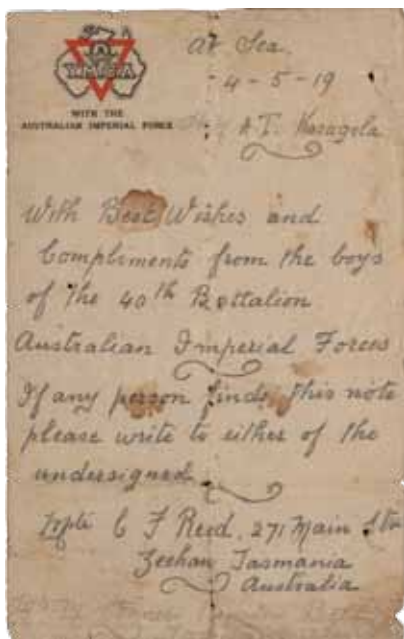 YMCA
WITH THE
AUSTRALIAN IMPERIAL FORCE
At Sea.
4 - 5 - 19
A T. Karagola
With Best Wishes and
Compliments from the boys
of the 40th Battalion
Australian Imperial Forces
If any person finds this note
please write to either of the
undersigned.
C F Reed, 271 Main Str
Zeehan Tasmania
Australia